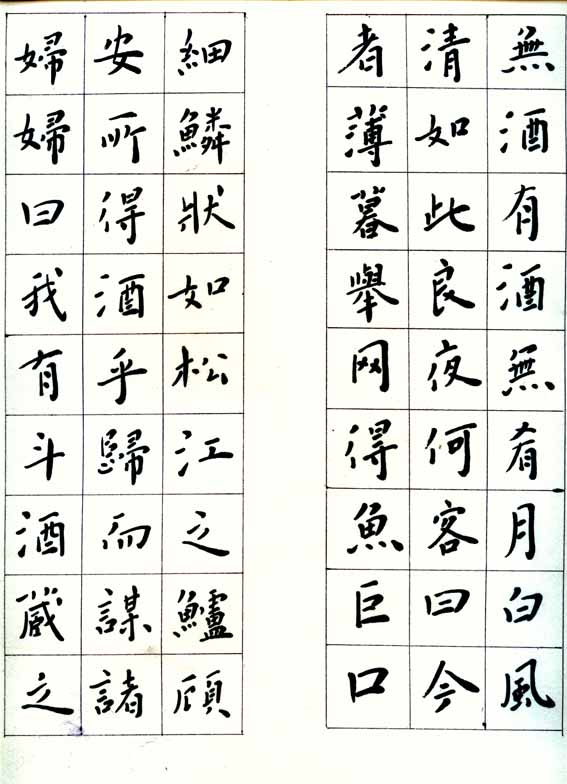 無酒有酒無肴月白風
清如此良夜何客曰今
者薄暮舉网得魚巨口
細鱗狀如松江之鱸顧
安所得酒乎歸而謀諸
婦婦曰我有斗酒藏之